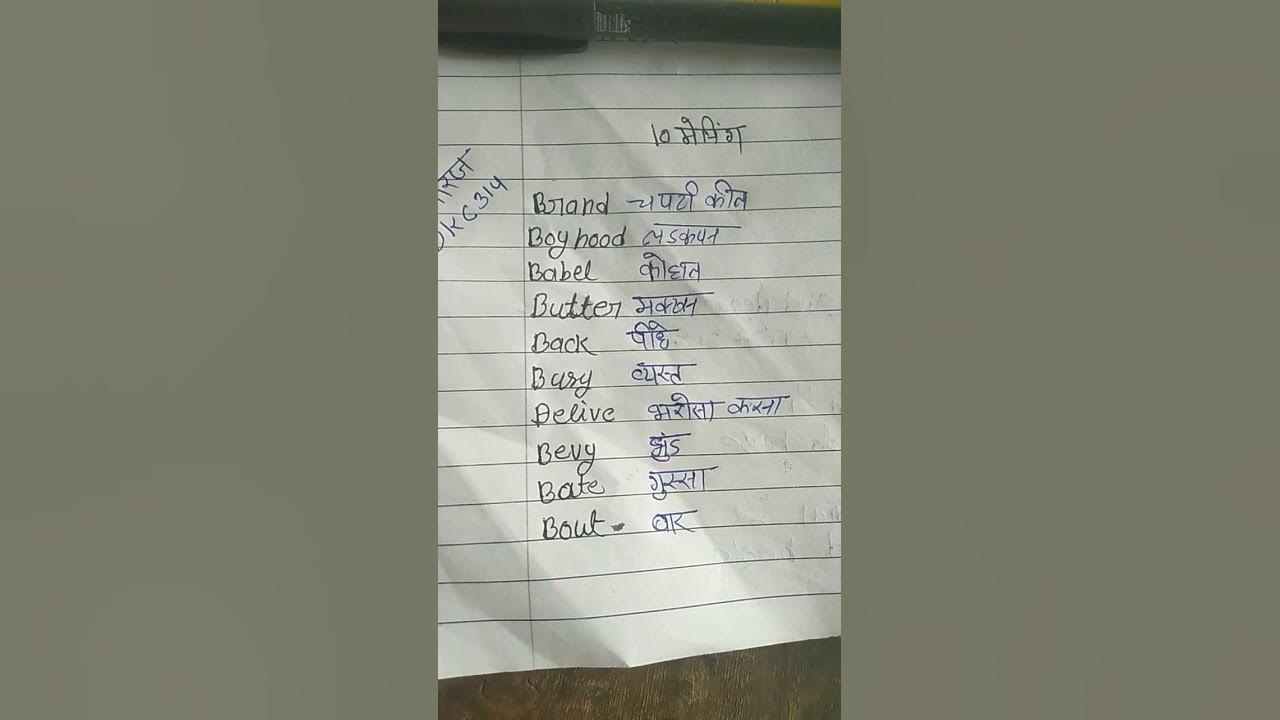 10 मेपिंग
Brand चपटी कील
Boyhood लडकपन
Babel कोहाल
Butter मक्खन
Back पीछे
Busy व्यस्त
Belive भरोसा करना
Bevy झुंड
Bate गुस्सा
Bout - बार
KC314